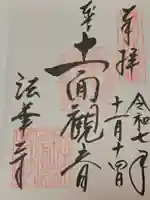 奉拝
令和七年
十一月十四日
十一面観音
法華寺